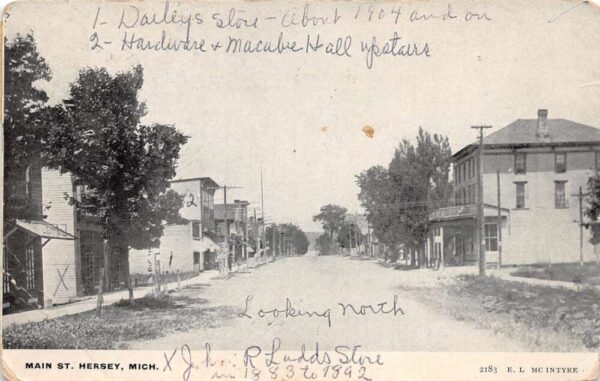 1 Dailey's Store - About 1904 and on
2 - Hardware & Macabre Hall upstairs
1
2
X
Looking North
MAIN ST. HERSEY, MICH.
2183 E. L. MC INTYRE
X J. h. R Ladds Store
in 1883 to 1892